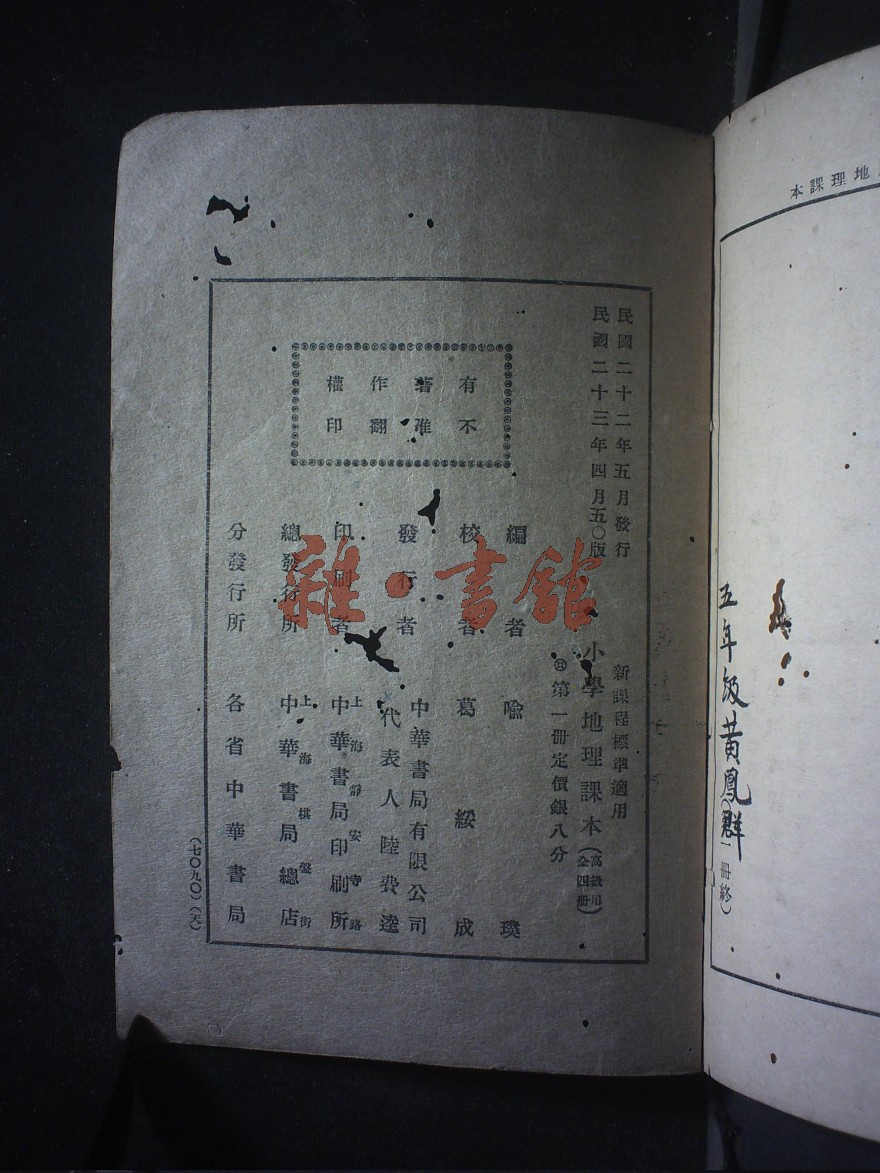 地理課本
五年級黃鳳群
一冊終）
民國二十二年五月發行
民國二十三年四月五〇版
新課程標準適用
小學地理課本（高級用全四冊）
第一冊定價銀八分
有著作權
不准翻印
編者 喻璞
校者 葛綏成
發行者 中華書局有限公司
代表人 陸費逵
印刷者 上海靜安寺路
中華書局印刷所
總發行所 上海棋盤街
中華書局總店
分發行所 各省中華書局
（七〇九〇）（天）
雜·書館